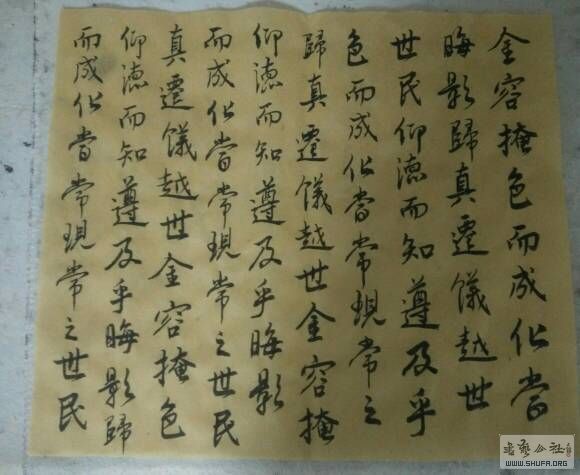 金容掩色而成化當
晦影歸真遷儀越世
世民仰德而知遵及乎
色而成化當常現常之
歸真遷儀越世金容掩
仰德而知遵及乎晦影
而成化當常現常之世民
真遷儀越世金容掩色
仰德而知遵及乎晦影歸
而成化當常現常之世民
书艺公社
WWW.SHUFA.ORG